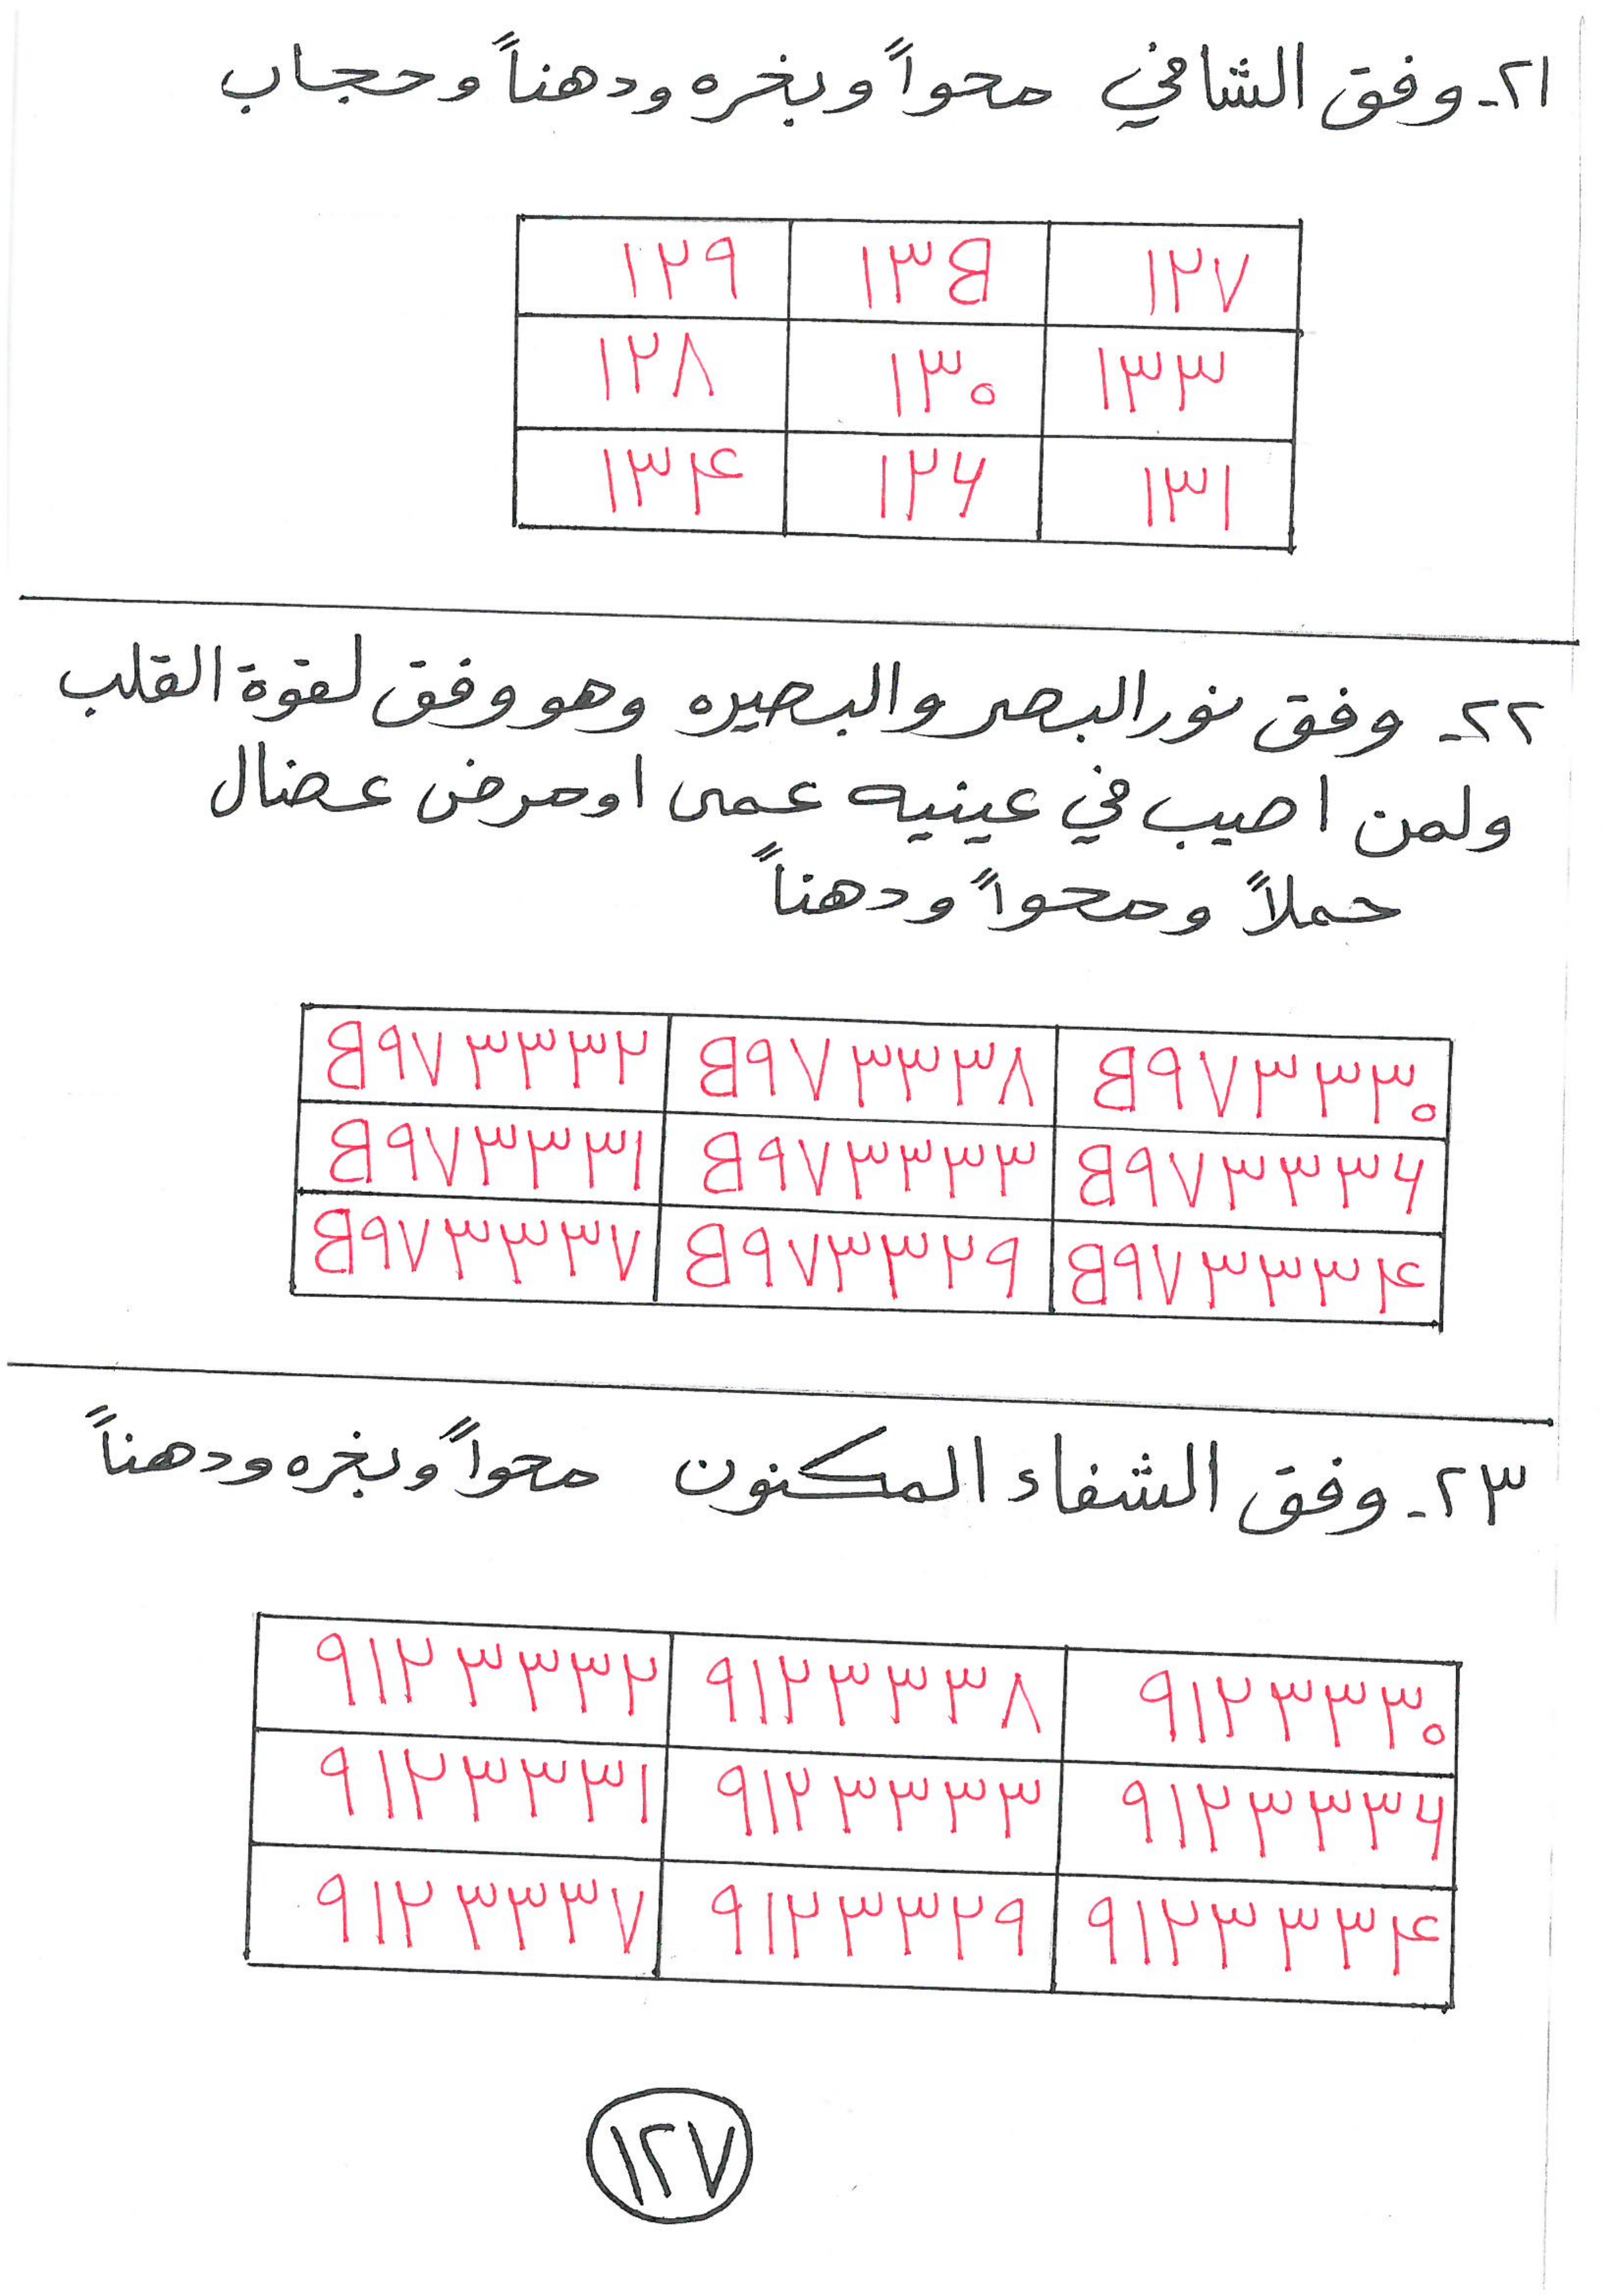 ٢١- وفق الشافي محواً وبخره ودهناً وحجاب
١٢٩ ١٣B ١٢٧
١٢٨ ١٣٠ ١٣٣
١٣۴ ١٢۶ ١٣١
٢٢- وفق نور البصر والبصيره وهو وفق لقوة القلب
ولمن اصيب في عينيه عمى او مرض عضال
حملاً ومحواً ودهناً
B٩٧٣٣٣٢ B٩٧٣٣٣٨ B٩٧٣٣٣٠
B٩٧٣٣٣١ B٩٧٣٣٣٣ B٩٧٣٣٣۶
B٩٧٣٣٣٧ B٩٧٣٣٢٩ B٩٧٣٣٣۴
٢٣- وفق الشفاء المكنون محواً وبخره ودهناً
٩١٢٣٣٣٢ ٩١٢٣٣٣٨ ٩١٢٣٣٣٠
٩١٢٣٣٣١ ٩١٢٣٣٣٣ ٩١٢٣٣٣۶
٩١٢٣٣٣٧ ٩١٢٣٣٢٩ ٩١٢٣٣٣۴
١٢٧